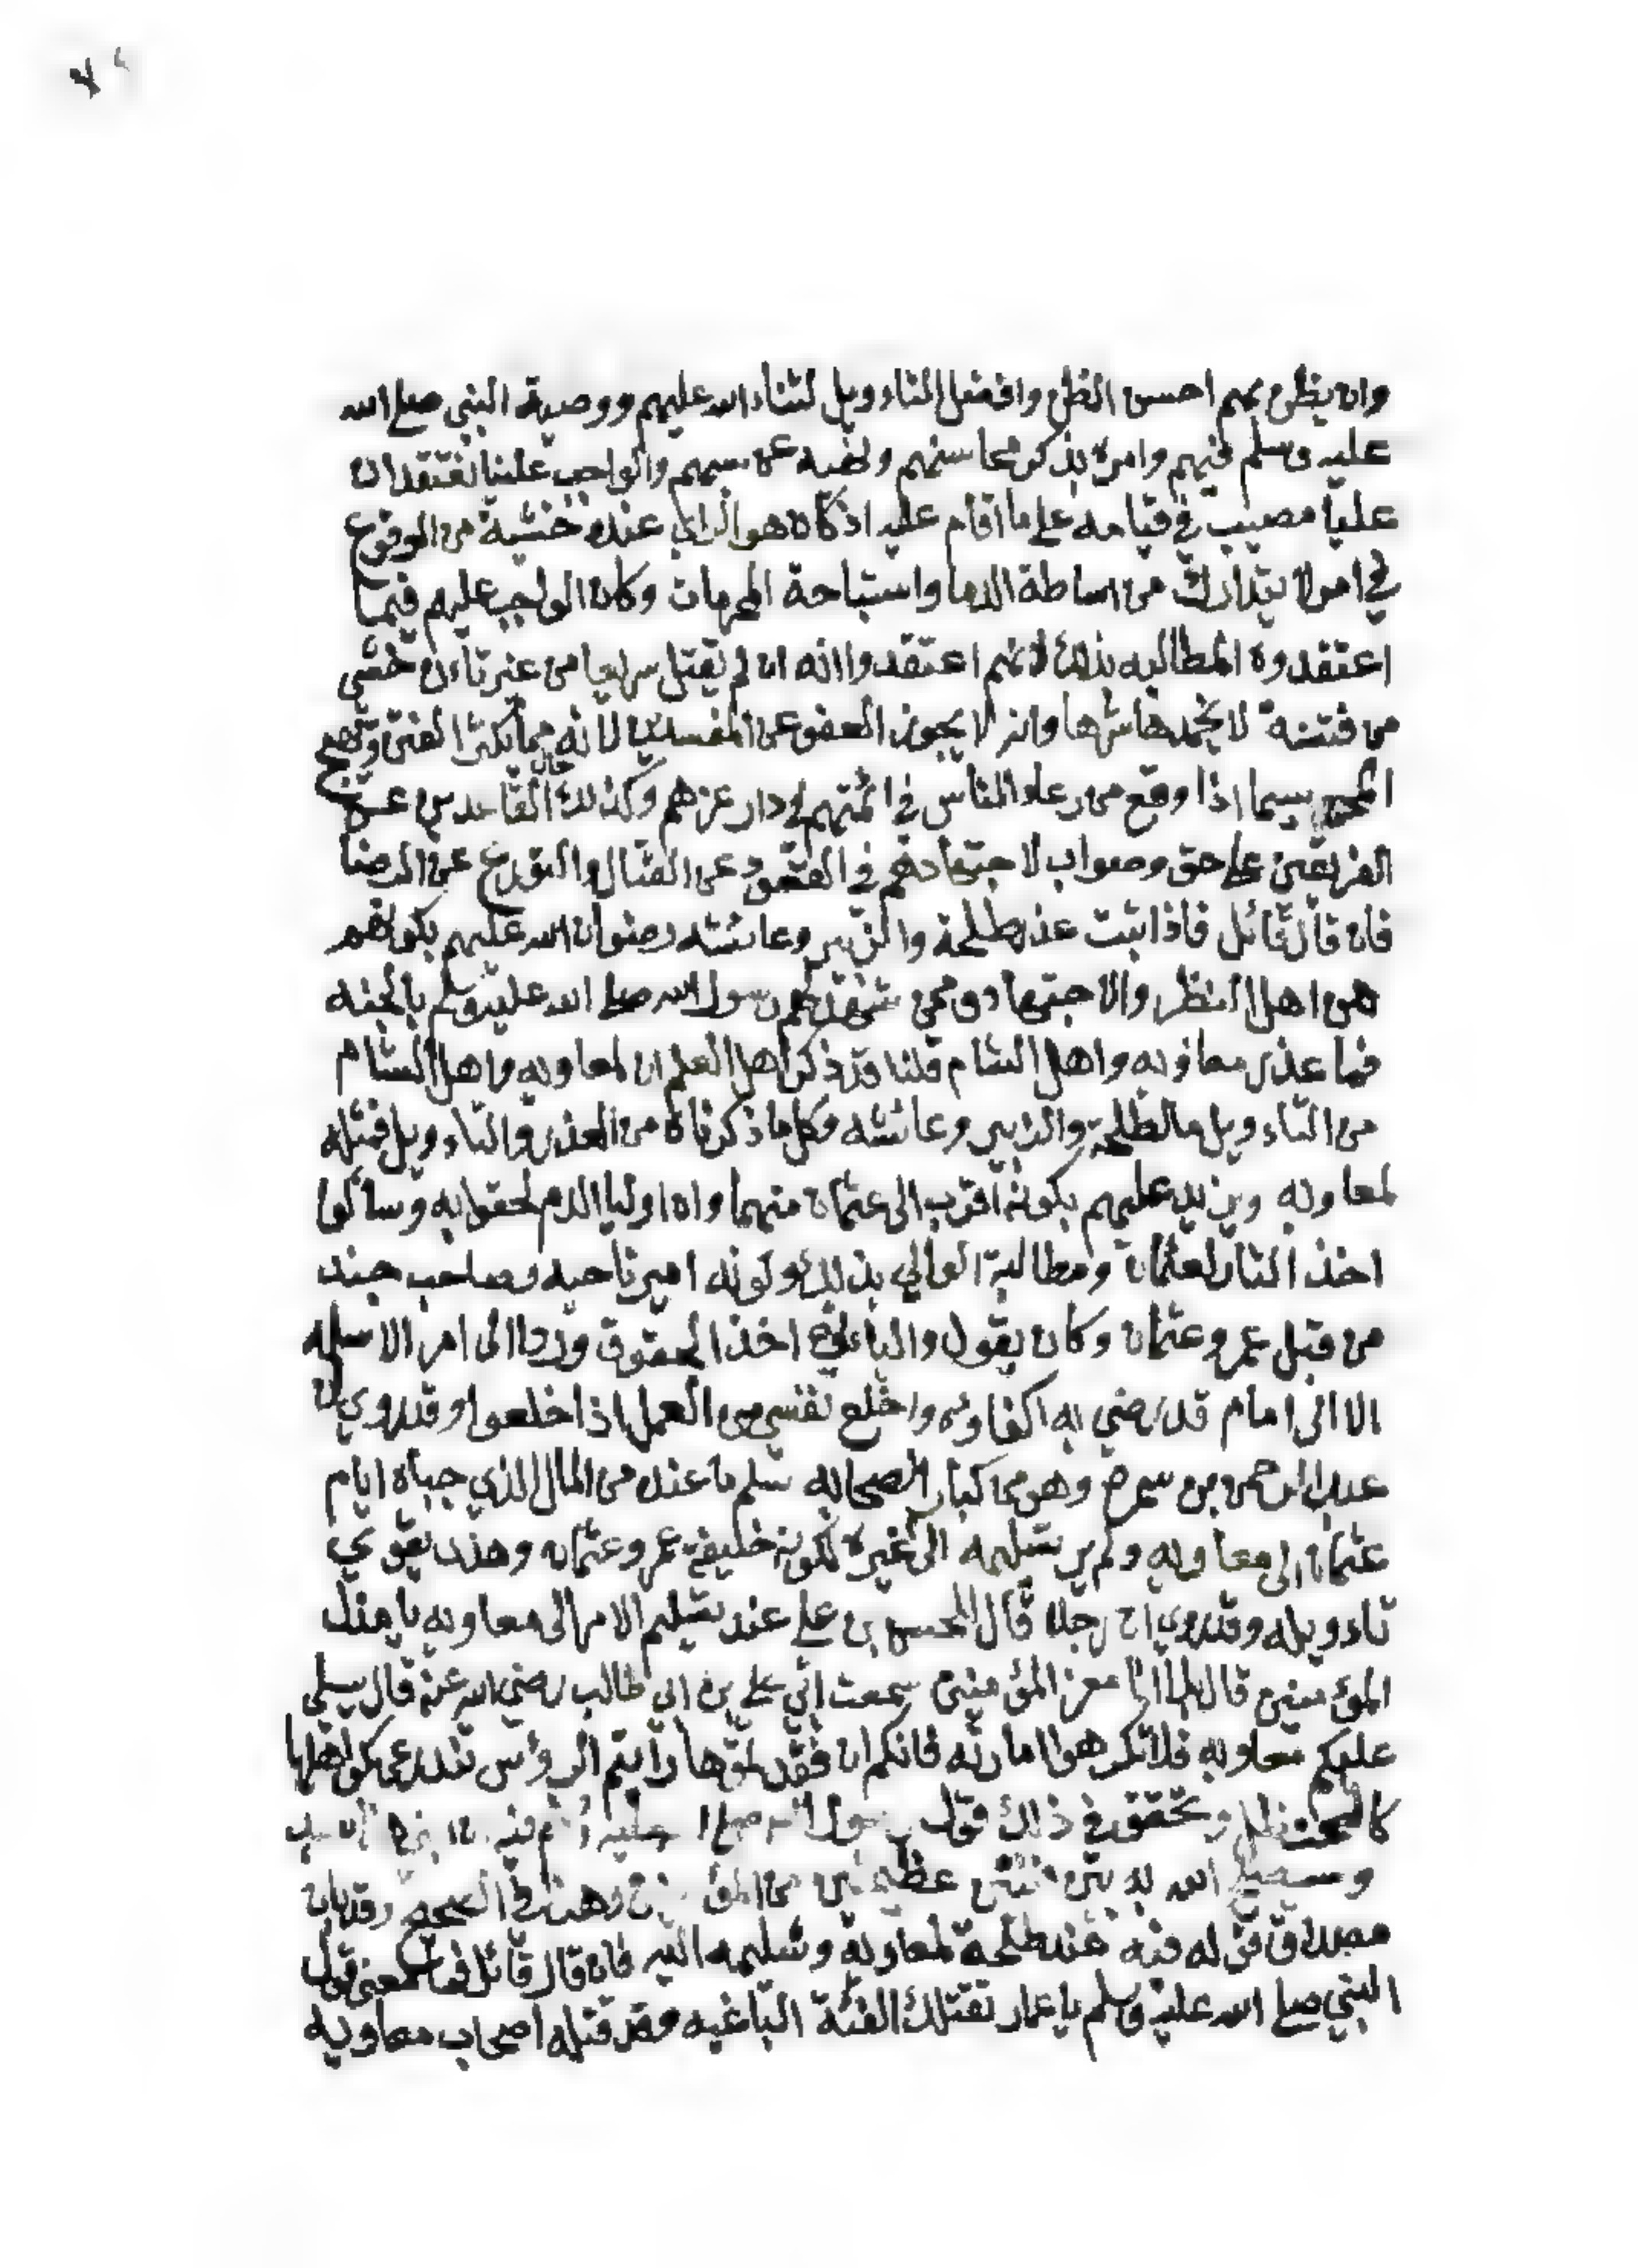 وان يظن بهم احسن الظن وافضل التاءويل لثناء الله عليهم ووصية النبي صلى الله
عليه وسلم فيهم وامره بذكر محاسنهم ونهيه عن سبهم والواجب علينا نعتقد ان
عليا مصيب في قيامه على ما اقام عليه اذ كان هو الراي عنده خشية من الوقوع
في امر لا يتدارك من اساطة الدما واستباحة الحرمات وكان الواجب عليهم فيما
اعتقدوه المطالبه بذلك لانهم اعتقدوا انه ان لم يقتل سريعا من غير تاءن خشي
من فتنة لا يخمدها شرها وانه لا يجوز العفو عن المفسدين لانه مما يكثر الفتن وتهيج
سيما اذا وقع من رعاء الناس في ائمتهم ودار عزهم وكذلك حال القاعدين عن
الفريقين على حق وصواب لاجتهادهم في القعود عن القتال والتورع عن الدما
فان قال قائل فاذا ثبت عذر طلحة والزبير وعائشه رضوان الله عليهم بكونهم
من اهل النظر والاجتهاد وممن شهد لهم رسول الله صلى الله عليه وسلم بالجنه
فما عذر معاويه واهل الشام قلنا قد ذكر اهل العلم ان لمعاويه واهل الشام
من التاءويل ما لطلحة والزبير وعائشه وكل ما ذكرناه من العذر والتاءويل فمثله
لمعاويه ويزيد عليهم بكونه اقرب الى عثمان منهما وان اوليا الدم لحقوا به وسالوا
اخذ الثار لعثمان ومطالبة الوالي بذلك ولكونه امير ناحيه وصاحب جند
من قبل عمر وعثمان وكان يقول اخذ الحقوق ورد الى امر الا سلمه
الا الى امام قد رضي به اكفاوه واخلع نفسي من العمل اذا خلعوا وقد روي ان
عبد الرحمن بن سمره وهو من كبار الصحابه سلم ما عنده من المال الذي جباه ايام
عثمان الى معاويه ولم ير تسليمه الى غيره لكونه خليفة عمر وعثمان وهذا يقوي
تاءويله وقد روي ان رجلا قال للحسن بن علي عند تسليم الامر الى معاويه يا مذل
المؤمنين قال انا معز المؤمنين سمعت ابي علي بن ابي طالب رضي الله عنه قال سيلي
عليكم معاويه فلا تكرهوا امارته فانكم ان فقدتموها رايتم الرؤس تندر عن كواهلها
كالحنظل وتحقق في ذلك قول رسول الله صلى الله عليه وسلم فيه
وسيصلح الله به بين فئتين عظيمتين من المؤمنين وهذا الصحيح وقد بان
مصداق قوله فيه عند صلحه لمعاوية وتسليمه اليه فان قال قائل فما معنى قول
النبي صلى الله عليه وسلم يا عمار تقتلك الفئة الباغيه وقد قتله اصحاب معاويه